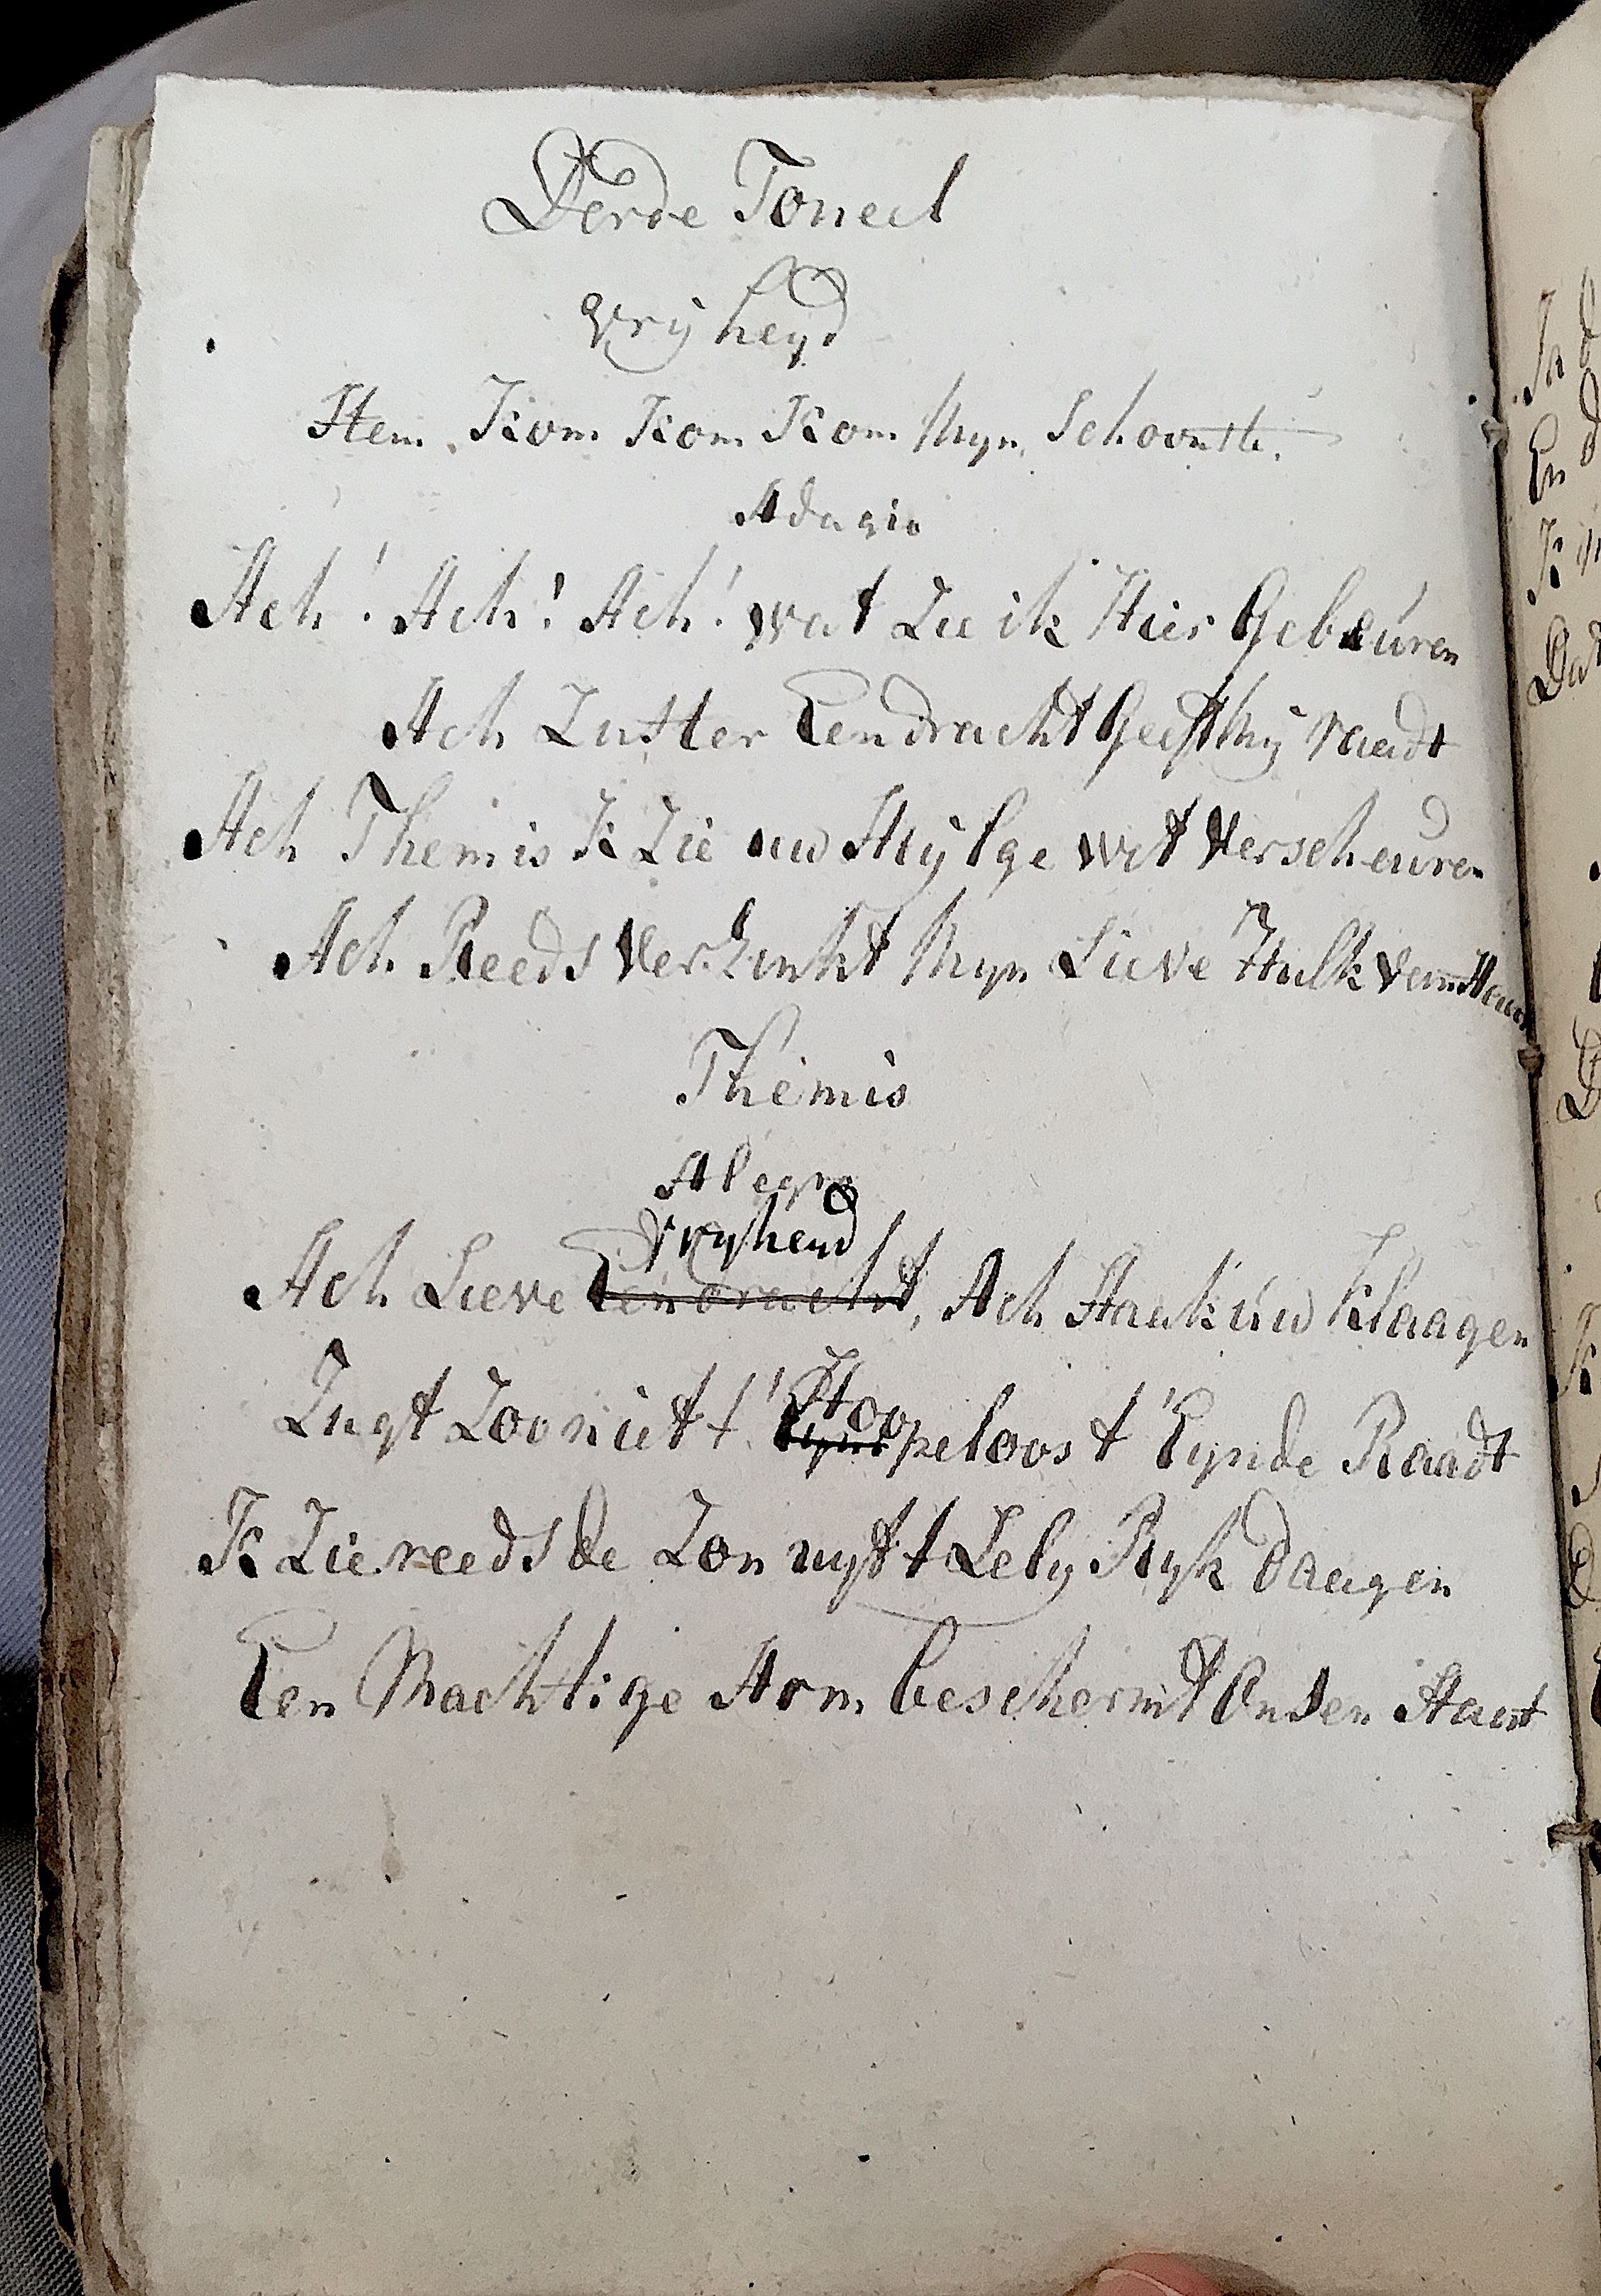 Derde Toneel
Vryheyd
Stem Kom Kom Kom Myn Schoonste.
Adagio
Ach! Ach! Ach! wat Zie ik Hier Gebeuren
Ach Zuster Eendracht Geeft My raadt
Ach Themis K Zie uw Hylge wet Verscheuren
Ach Reeds Verzinkt Myn Lieve Hulk
Themis
Alegro
Vryheyd
Ach Lieve Eendracht, Ach Staek uw Klaagen
Hoo
Zugt Zoo niet t' peloos t' Eynde Raadt
K Zie reeds de Zon uyt t Lely Ryk daagen
Een Machtige Arm beschermt Onsen Staat
In d
En d
K
Dat